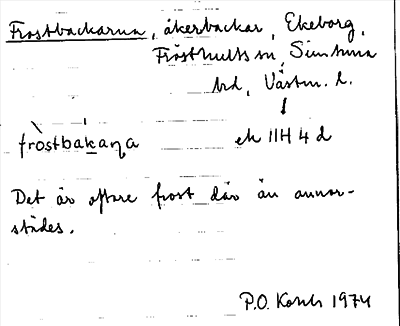 Frostbackarna, åkerbackar, Ekeborg,
Frösthults sn, Simtuna
hd, Västm. l.
fròstbákaɳa ek 11H 4 d
Det är oftare frost där än annor-
städes.
P.O. 1974